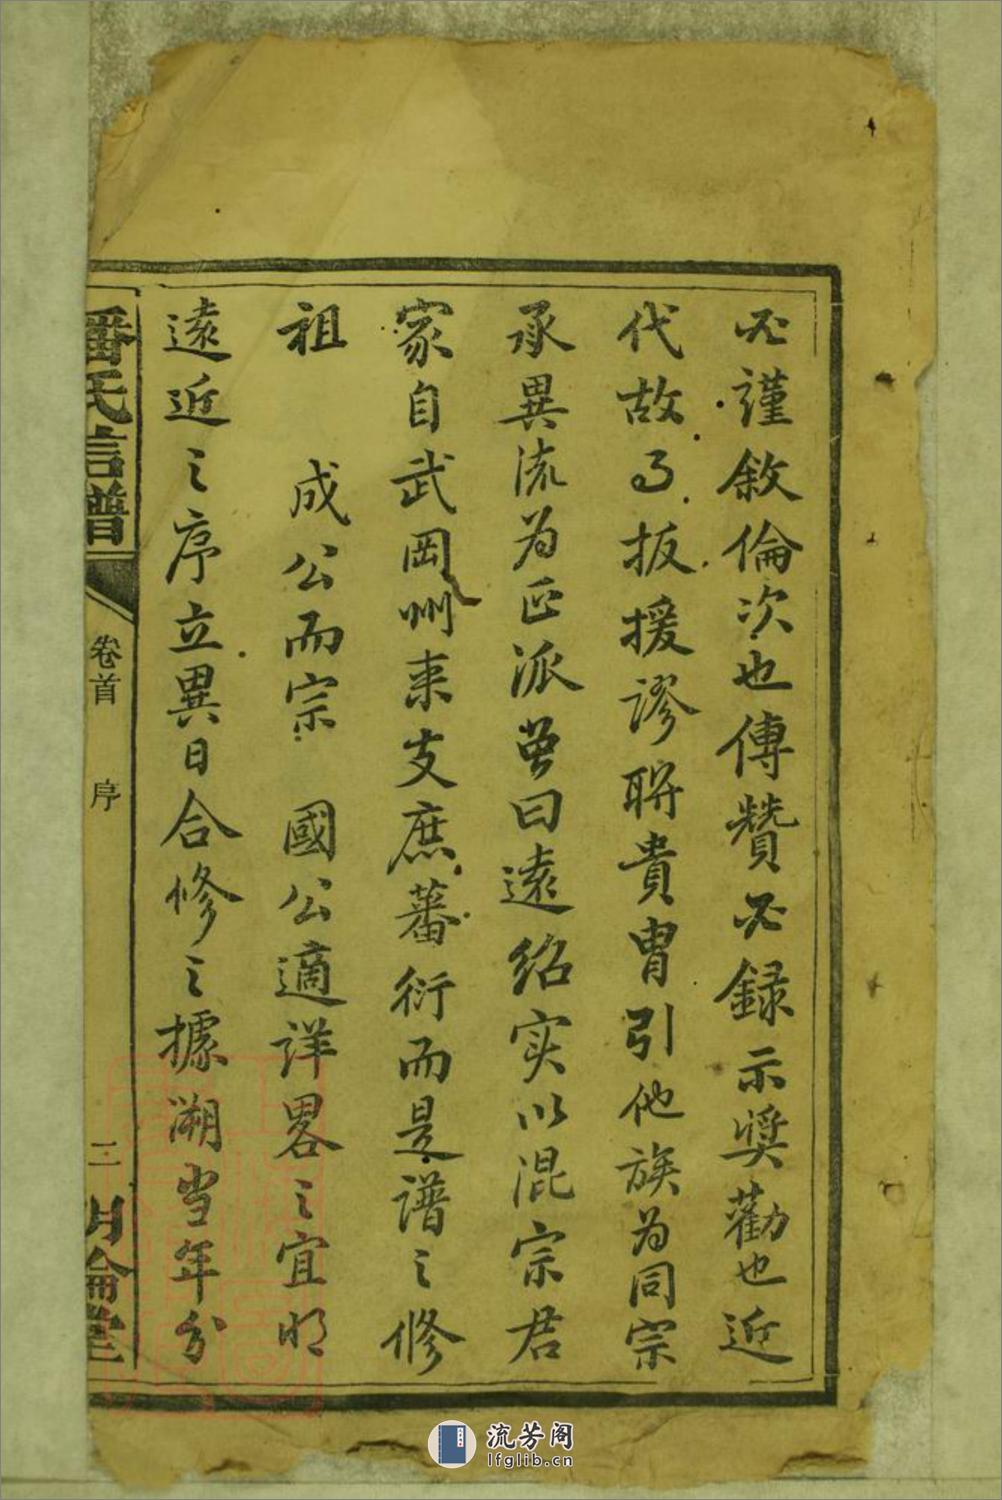 必謹敘倫次也傳贊必録示奬勸也近
代故事扳援謬聨貴冑引他族為同宗
承異流為正派曾曰遠紹实以混宗君
家自武岡州来支庶蕃衍而是譜之修
祖 成公而宗 國公適詳畧之宜明
遠近之序立異日合修之據溯当年分
潘氏信譜
卷首 序
二 明倫堂
流芳阁
lfglib.cn